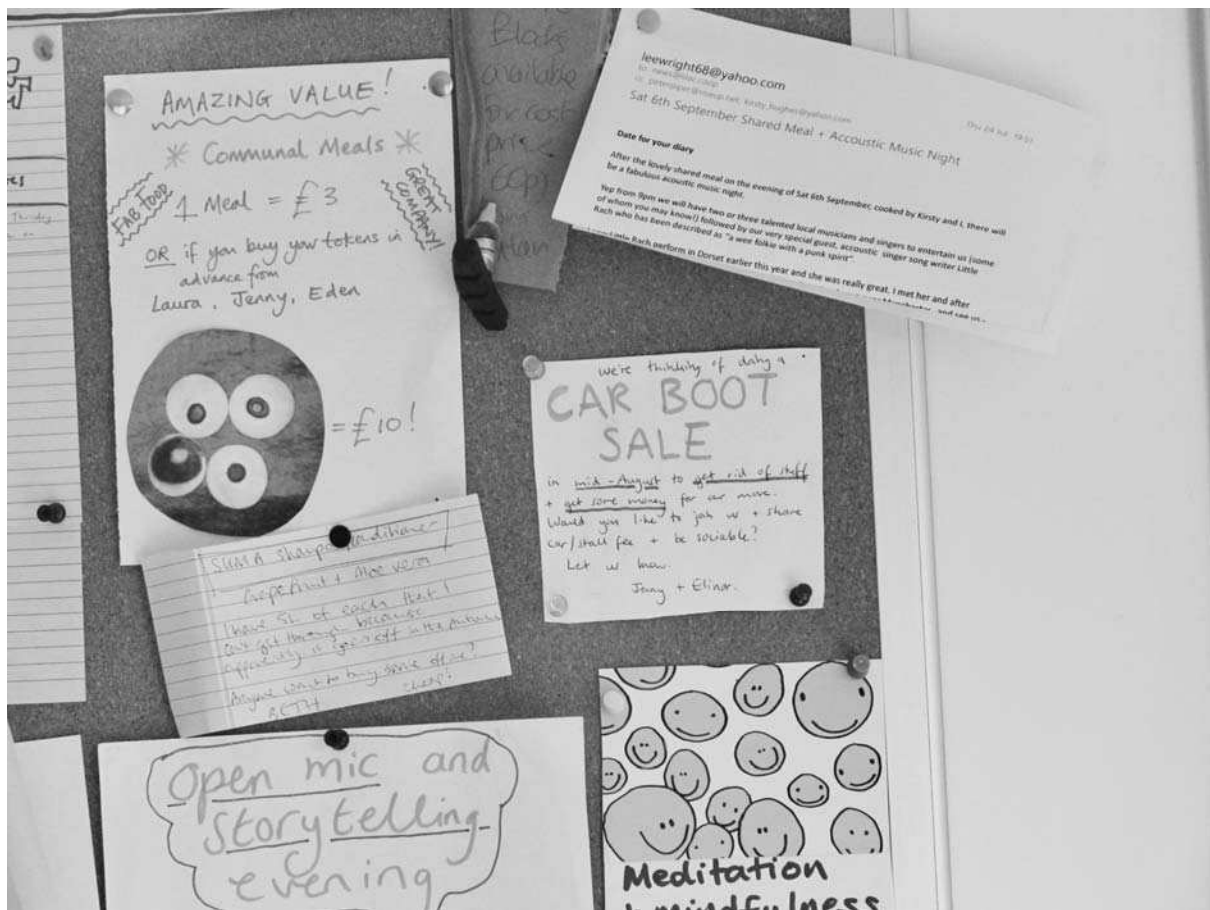 AMAZING VALUE!
* Communal Meals *
FAB FOOD
GREAT COMPANY!
1 Meal = £3
OR if you buy your tokens in
advance from
Laura, Jenny, Eden
= £10!
available
for cost
price
leewright68@yahoo.com
Sat 6th September Shared Meal + Accoustic Music Night
Thu 24 Jul
Date for your diary
After the lovely shared meal on the evening of Sat 6th September, cooked by Kirsty and I, there will
be a fabulous acoustic music night.
Yep from 9pm we will have two or three talented local musicians and singers to entertain us (some
of whom you may know!) followed by our very special guest, accoustic singer song writer Little
Rach who has been described as "a wee folkie with a punk spirit".
Little Rach perform in Dorset earlier this year and she was really great. I met her and after
we're thinking of doing a
CAR BOOT
SALE
in mid-August to get rid of stuff
+ get some money for our move.
Would you like to join us + share
car/stall fee + be sociable?
Let us know.
Jenny + Elinor.
SUMA
Grapefruit + Aloe vera
I have 5L of each that I
can't get through because
apparently it goes off in the
Anyone want to buy some off me?
cheap!
BETH
Open mic and
storytelling
evening
Meditation
mindfulness
Thursday